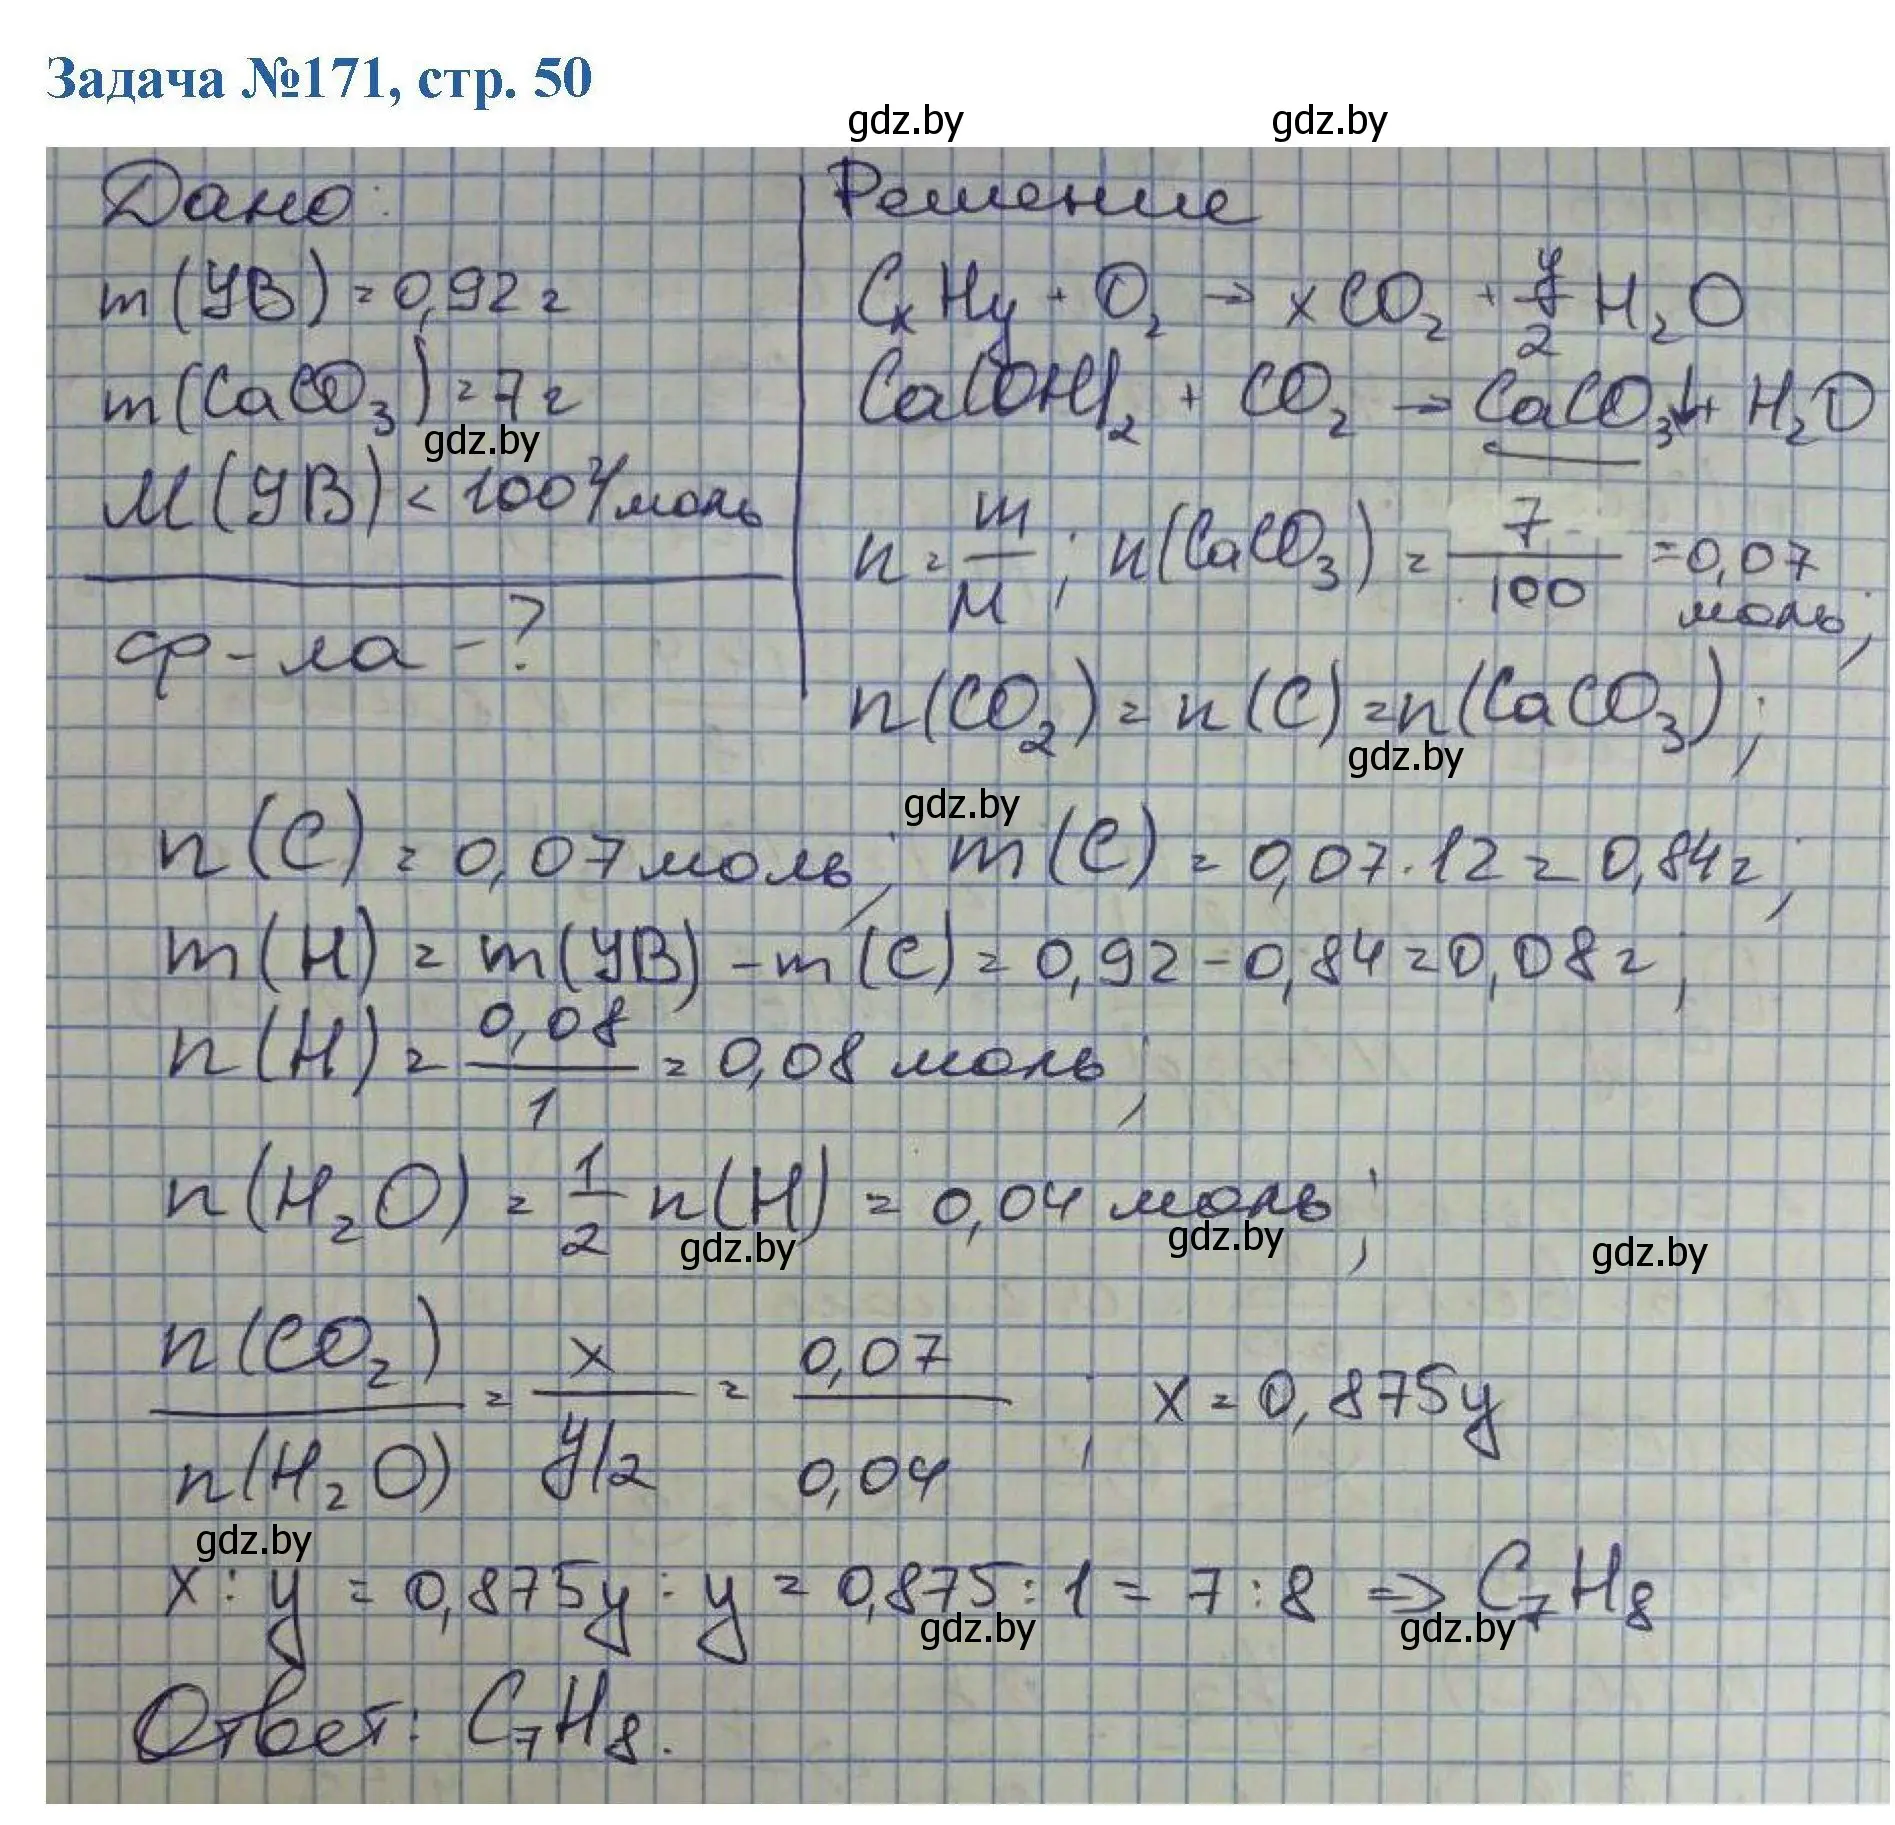 Задача №171, стр. 50
gdz.by gdz.by
Дано:
m(УВ) = 0,92 г
m(CaCO₃) = 7 г
gdz.by
M(УВ) < 100 г/моль
ф-ла - ?
Решение
CₓHᵧ + O₂ → xCO₂ + y/2 H₂O
Ca(OH)₂ + CO₂ → CaCO₃↓ + H₂O
n = m/M; n(CaCO₃) = 7/100 = 0,07 моль;
n(CO₂) = n(C) = n(CaCO₃);
gdz.by
gdz.by
n(C) = 0,07 моль; m(C) = 0,07 · 12 = 0,84 г;
m(H) = m(УВ) - m(C) = 0,92 - 0,84 = 0,08 г;
n(H) = 0,08/1 = 0,08 моль;
n(H₂O) = 1/2 n(H) = 0,04 моль;
gdz.by gdz.by gdz.by
n(CO₂)/n(H₂O) = x/(y/2) = 0,07/0,04; x = 0,875y
gdz.by
x : y = 0,875y : y = 0,875 : 1 = 7 : 8 => C₇H₈
gdz.by gdz.by
Ответ: C₇H₈.